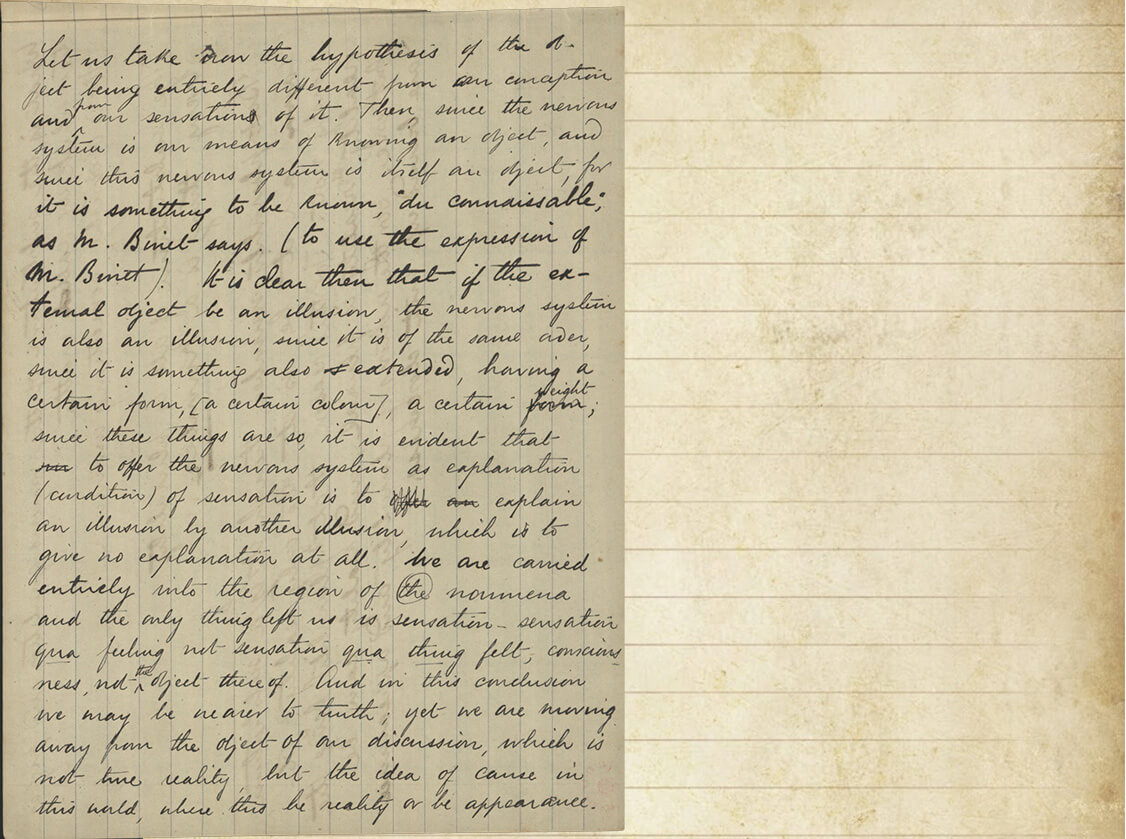 Let us take now the hypothesis of the o-
ject being entirely different from our conception
and from our sensations of it. Then, since the nervous
system is our means of knowing an object, and
since this nervous system is itself an object, for
it is something to be known, "du connaissable",
as M. Binet says. (to use the expression of
M. Binet). It is clear then that if the ex-
ternal object be an illusion, the nervous system
is also an illusion, since it is of the same order,
since it is something also extended, having a
certain form, [a certain colour], a certain weight;
since these things are so, it is evident that
to offer the nervous system as explanation
(condition) of sensation is to explain
an illusion by another illusion, which is to
give no explanation at all. We are carried
entirely into the region of the noumena
and the only thing left us is sensation - sensation
qua feeling not sensation qua thing felt; conscious-
ness, not the object thereof. And in this conclusion
we may be nearer to truth; yet we are moving
away from the object of our discussion, which is
not true reality, but the idea of cause in
this world, where this be reality or be appearance.